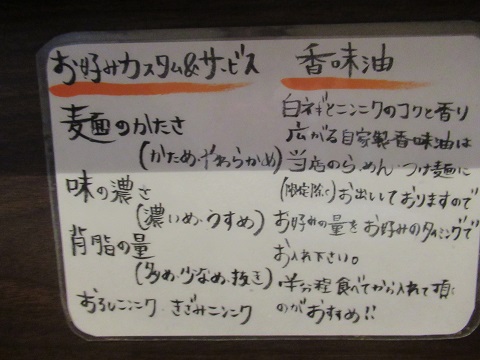 お好みカスタム&サービス
麺のかたさ
(かため・やわらかめ)
味の濃さ
(濃いめ・うすめ)
背脂の量
(多め・少なめ・抜き)
おろしニンニク きざみニンニク
香味油
白ネギとニンニクのコクと香り
広がる自家製香味油は
当店のらーめん・つけ麺に
(限定除く)お出しておりますので
お好みの量をお好みのタイミングで
お入れ下さい。
・半分程食べてから入れて頂く
のがおすすめ!!